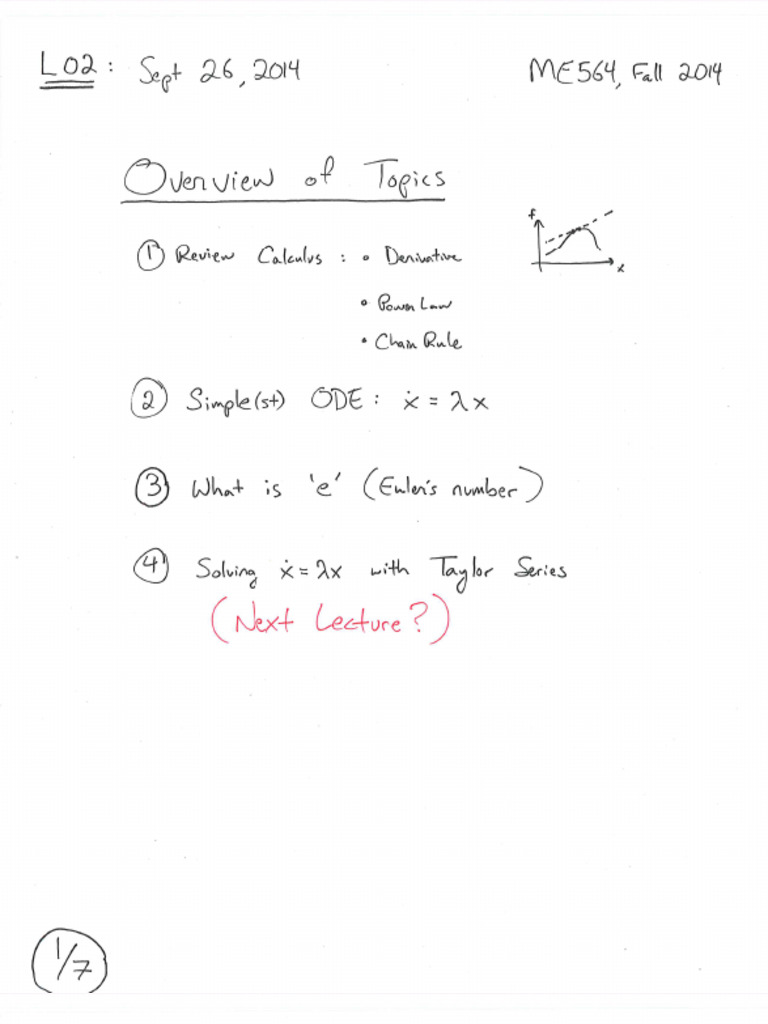 L02: Sept 26, 2014 ME564, Fall 2014
Overview of Topics
f
① Review Calculus : • Derivative
x
• Power Law
• Chain Rule
② Simple(st) ODE: ẋ = λx
③ What is 'e' (Euler's number)
④ Solving ẋ = λx with Taylor Series
(Next Lecture?)
1/7